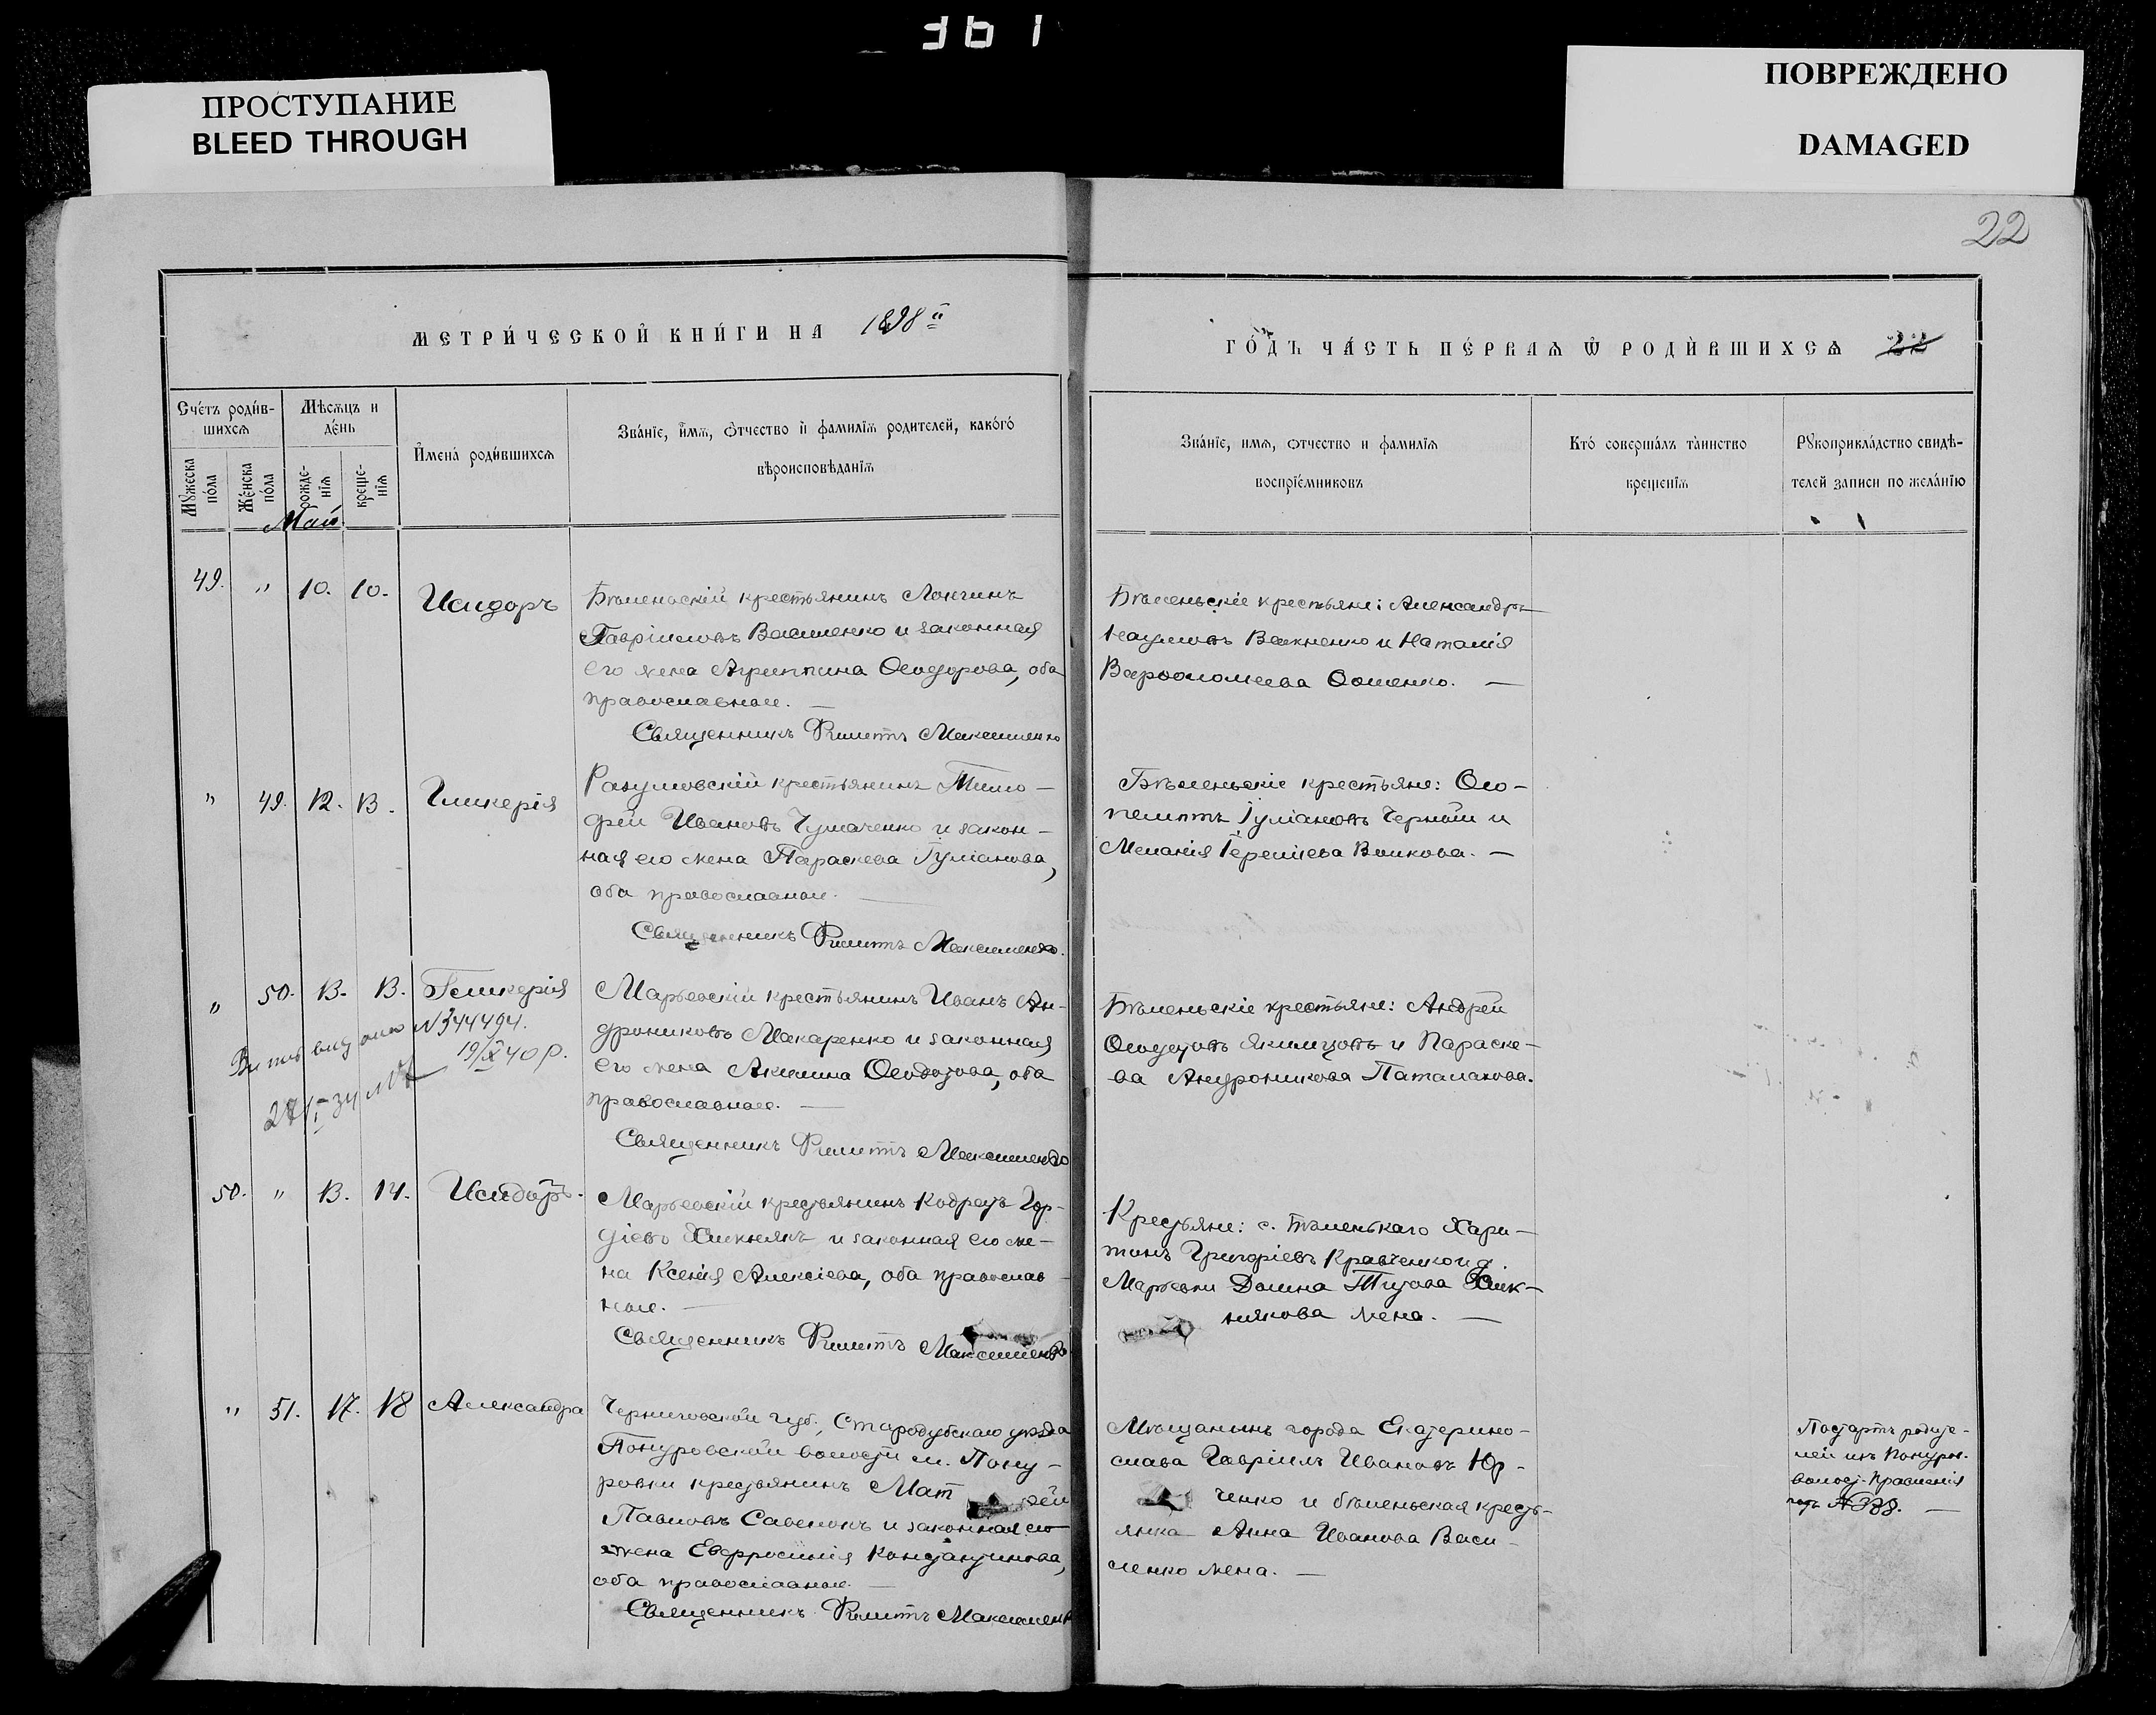 361
ПРОСТУПАНИЕ
BLEED THROUGH
ПОВРЕЖДЕНО
DAMAGED
22
МЕТРИ́ЧЕСКОЙ КНИ́ГИ НА 1898й
ГО́ДЪ ЧА́СТЬ ПЕ́РВАѦ Ѿ РОДИ́ВШИХСѦ 22
Сче́тъ роди́в-
шихсѧ
Мѣсѧцъ и
де́нь
Мꙋжеска
по́ла
Же́нска
по́ла
рожде-
нїѧ
креще-
нїѧ
И҆мена̀ роди́вшихсѧ
Зва́нїе, и҆́мѧ, ѻ҆́тчество и҆ фамилїѧ родителей, како́гѡ
вѣроисповѣданїѧ
Зва́нїе, имѧ, ѻтчество и фамилїѧ
воспрїе́мниковъ
Кто̀ соверша́лъ та̀инство
креще́нїѧ
Рꙋкоприкла́дство свидѣ-
телей записи по жела́нїю
Май
49. " 10. 10. Исидоръ
Бѣленьскій крестьянинъ Логгинъ
Гавріиловъ Василенко и законная
его жена Агриппина Ѳеодорова, оба
православные. —
Священникъ Филиппъ Максименко
Бѣленьскіе крестьяне: Александръ
Наумовъ Вакненко и Наталія
Варѳоломеева Ѳоменко. —
" 49. 12. 13. Гликерія
Разумовскій крестьянинъ Тимо-
фей Ивановъ Чумаченко и закон-
ная его жена Параскева Іуліанова,
оба православные. —
Священникъ Филиппъ Максименко.
Бѣленьскіе крестьяне: Ѳео-
пемптъ Іуліановъ Черный и
Меланія Іереміева Волкова. —
" 50. 13. 13. Гликерія
Марьевскій крестьянинъ Иванъ Ан-
дрониковъ Макаренко и законная
его жена Акилина Ѳеодотова, оба
православные. —
Священникъ Филиппъ Максименко
Бѣленьскіе крестьяне: Андрей
Ѳеодотовъ Якимцовъ и Параске-
ва Андроникова Паталахова.
N344494.
19/X 40 р.
50. " 13. 14. Исидоръ.
Марьевскій крестьянинъ Кодратъ Гор-
діевъ Хижнякъ и законная его же-
на Ксенія Алексіева, оба православ-
ные. —
Священникъ Филиппъ Максименко
Крестьяне: с. Бѣленькаго Хари-
тонъ Григоріевъ Кравченко и д.
Марьевки Домна Титова Хиж-
някова жена. —
" 51. 17. 18 Александра
Черниговской губ., Стародубскаго уѣзда
Понуровской волости м. Пону-
ровки крестьянинъ Мат ѳей
Павловъ Савенокъ и законная его
жена Евфросинія Константинова,
оба православные. —
Священникъ Филиппъ Максименк
Мѣщанинъ города Екатерино-
слава Гавріилъ Ивановъ Юр-
ченко и бѣленьская кресть-
янка Анна Иванова Васи-
ленко жена. —